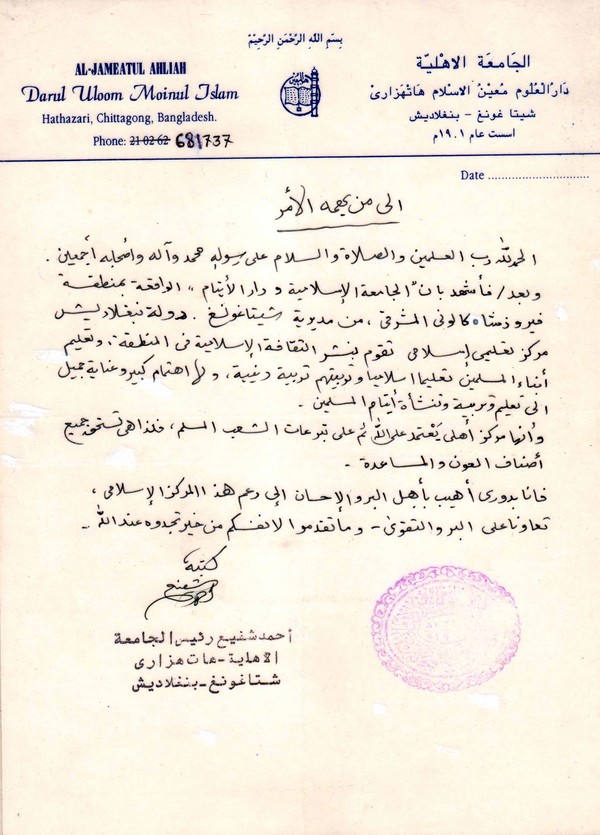 بِسْمِ اللهِ الرَّحْمٰنِ الرَّحِيْمِ
AL-JAMEATUL AHLIAH
Darul Uloom Moinul Islam
Hathazari, Chittagong, Bangladesh.
Phone: 21-02-62 681737
الجَامعَة الاهْليّة
دَارُالعُلوم مُعيْنُ الاسْلام هَاتْهزَارىْ
شيتا غونغ - بنغلاديش
اسست عام ١٩٠١م
Date ..............................
الى من يهمه الأمر
الحمد لله رب العلمين والصلاة والسلام على رسوله محمد وآله واصحابه أجمعين .
وبعد / فأشهد بان "الجامعة الإسلامية و دار الأيتام" الواقعة بمنطقة
فيروزشاه كالونى المشرقى ، من مديرية شيتاغونغ . دولة بنغلاديش
مركز تعليمى إسلامى تقوم بنشر الثقافة الإسلامية فى المنطقة . وتعليم
أبناء المسلمين تعليما اسلاميا و تربيتهم تربية دينية ، ولها اهتمام كبير وعناية جميل
الى تعليم وتربية وتنشأة أيتام المسلمين .
وأنها مركز أهلى يعتمد على الله ثم على تبرعات الشعب المسلم ، فلذا هى تستحق جميع
أصناف العون والمساعدة -
فانا بدورى أهيب بأهل البر والإحسان إلى دعم هذا المركز الإسلامى ،
تعاونا على البر والتقوى - وما تقدموا لانفسكم من خير تجدوه عند الله -
كتبه
أحمد شفيع رئيس الجامعة
الاهلية - هات هزارى
شتاغونغ - بنغلاديش